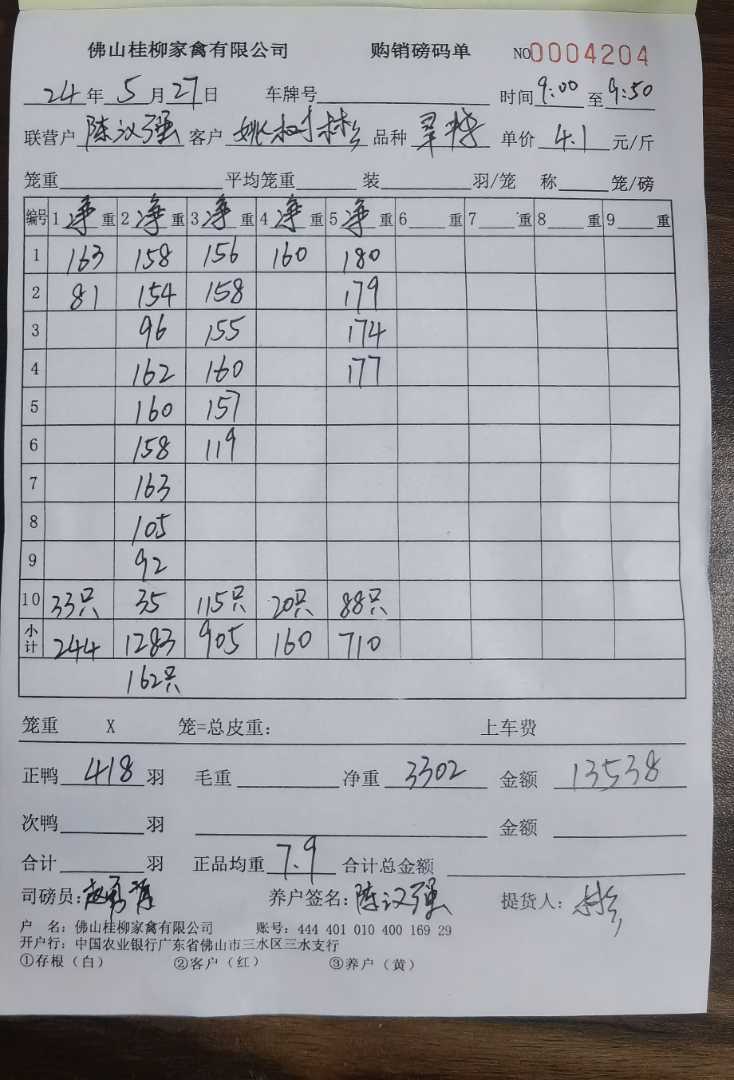 佛山桂柳家禽有限公司 购销磅码单 NO0004204
24年5月27日 车牌号 时间9:00至9:50
联营户 陈汉强 客户 姚树彬 品种 单价 4.1 元/斤
笼重 平均笼重 装 羽/笼 称 笼/磅
编号 1 净重 2 净重 3 净重 4 净重 5 净重 6 重 7 重 8 重 9 重
1 163 158 156 160 180
2 81 154 158 179
3 96 155 174
4 162 160 177
5 160 157
6 158 119
7 163
8 105
9 92
10 33只 35 115只 20只 88只
小计 244 1283 905 160 710
162只
笼重 X 笼=总皮重: 上车费
正鸭 418 羽 毛重 净重 3302 金额 13538
次鸭 羽 金额
合计 羽 正品均重 7.9 合计总金额
司磅员: 养户签名: 陈汉强 提货人: 彬
户 名: 佛山桂柳家禽有限公司 账号: 444 401 010 400 169 29
开户行: 中国农业银行广东省佛山市三水区三水支行
①存根(白) ②客户(红) ③养户(黄)